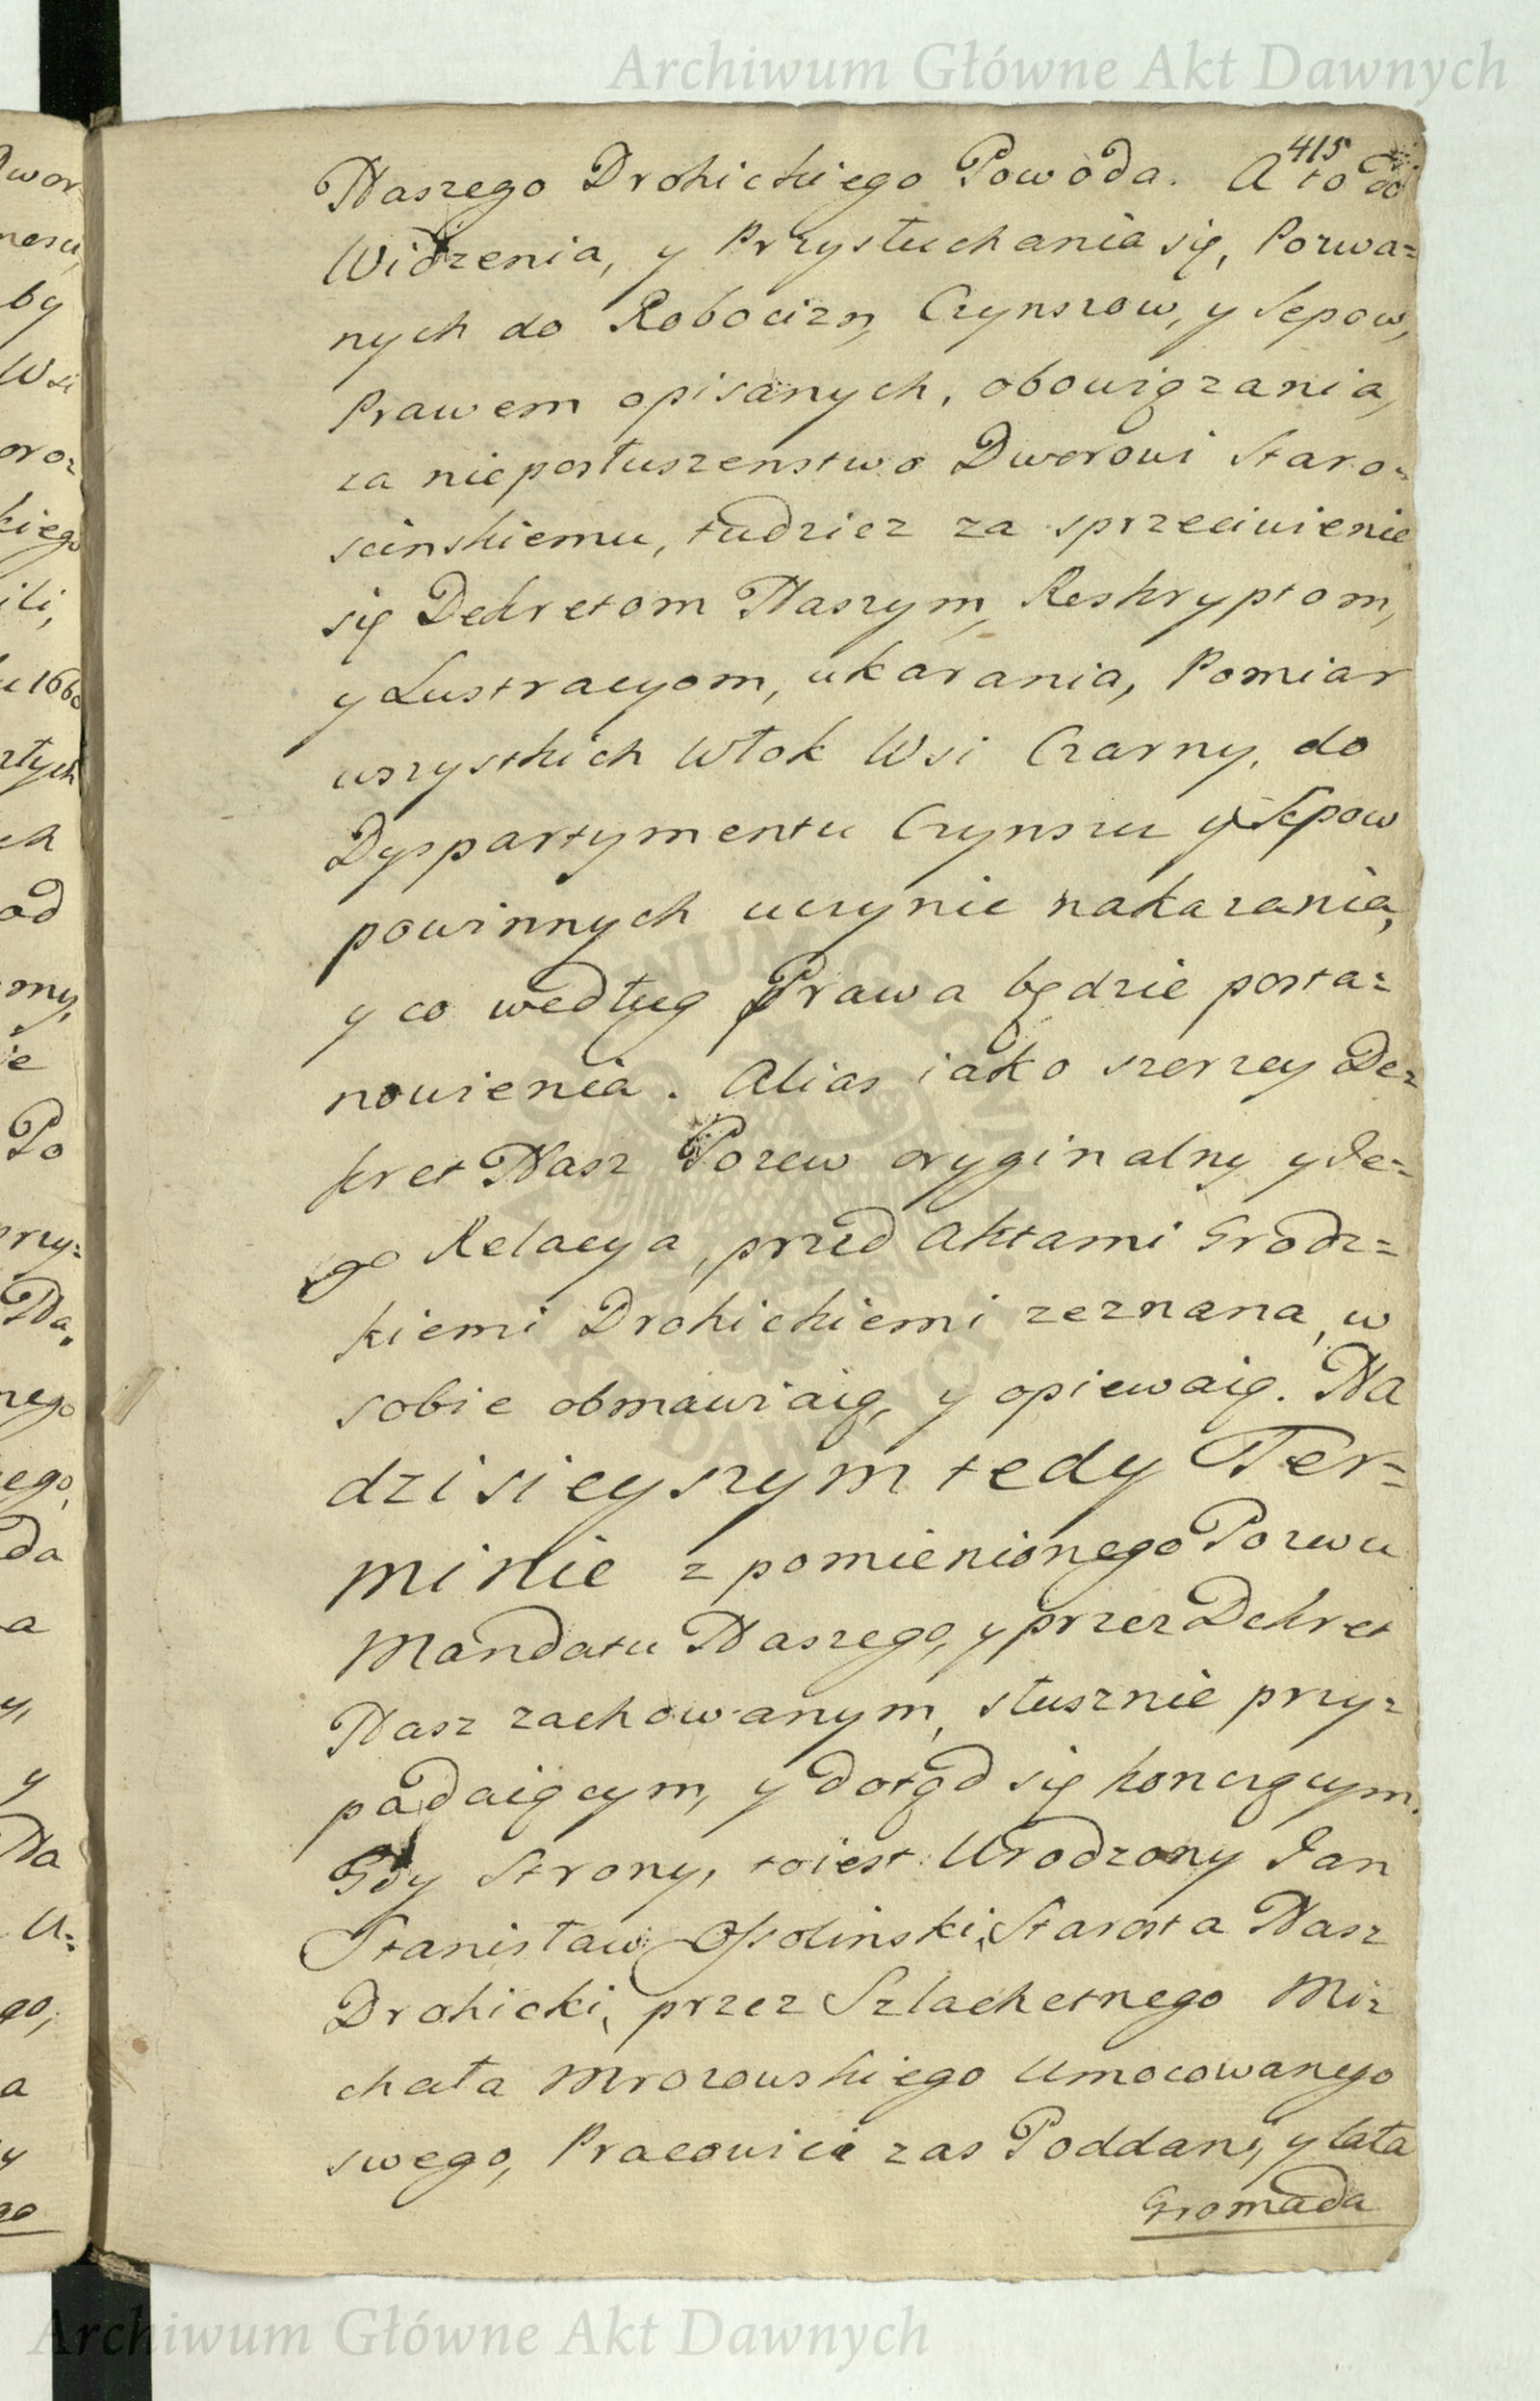 Archiwum Główne Akt Dawnych
415
Naszego Drohickiego Powoda. A to do
Widzenia, y Przysłuchania się, Pozwa=
nych do Robocizn, Czynszow, y Sepow,
Prawem opisanych, obowiązania,
za nieposłuszenstwo Dworowi Staro=
scinskiemu, tudziez za sprzeciwienie
się Dekretom Naszym, Reskryptom,
y Lustracyom, ukarania, Pomiar
wszystkich Włok Wsi Czarny, do
Dyspartymentu Czynszu y Sepow
powinnych uczynic nakazania,
y co według Prawa będzie posta=
nowienia. Alias iako szerzey De=
kret Nasz Pozew oryginalny y Je=
go Relacya, przed Aktami Grodz=
kiemi Drohickiemi zeznana, w
sobie obmawiaią, y opiewaią. Na
dzisieyszym tedy Ter=
minie z pomienionego Pozwu
Mandatu Naszego, y przez Dekret
Nasz zachowanym, słusznie przy=
padaiącym, y dotąd się konczącym.
Gdy Strony, toiest Urodzony Jan
Stanisław Ossolinski, Starosta Nasz
Drohicki, przez Szlachetnego Mi=
chała Mrozowskiego Umocowanego
swego, Pracowici zas Poddani, y cała
Gromada
Archiwum Główne Akt Dawnych